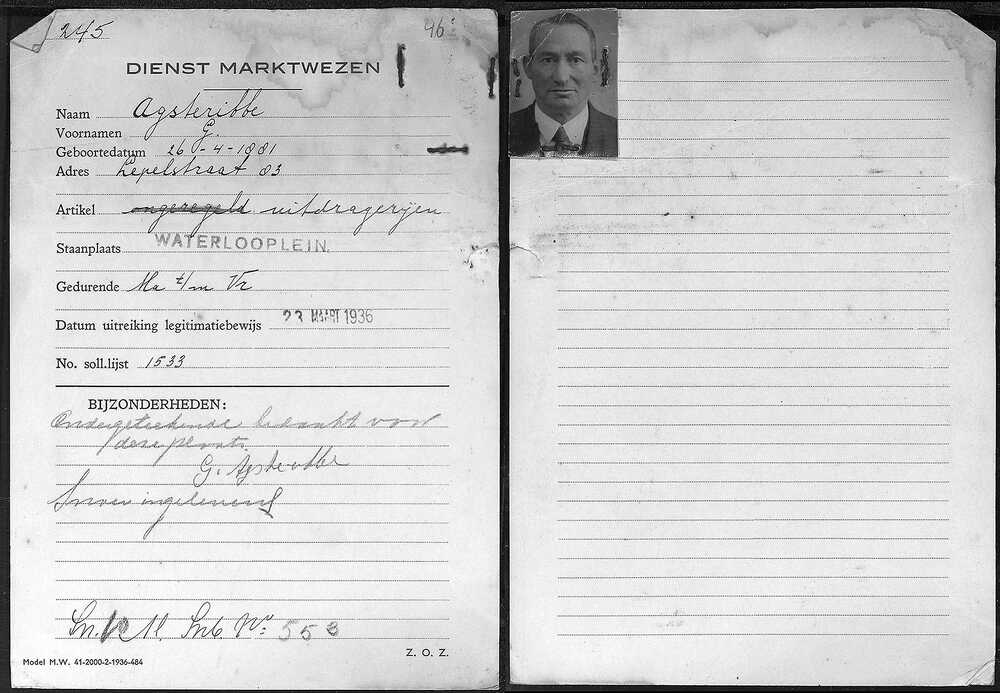 245
46
DIENST MARKTWEZEN
Naam Agsteribbe
Voornamen G.
Geboortedatum 26-4-1881
Adres Lepelstraat 83
Artikel ongeregeld uitdragerijen
Staanplaats WATERLOOPLEIN.
Gedurende Ma t/m Vr
Datum uitreiking legitimatiebewijs 23 MAART 1936
No. soll.lijst 1533
BIJZONDERHEDEN:
Ondergeteekende bedankt voor
deze plaats.
G. Agsteribbe
ingeleverd
No: 553
Z. O. Z.
Model M.W. 41-2000-2-1936-484